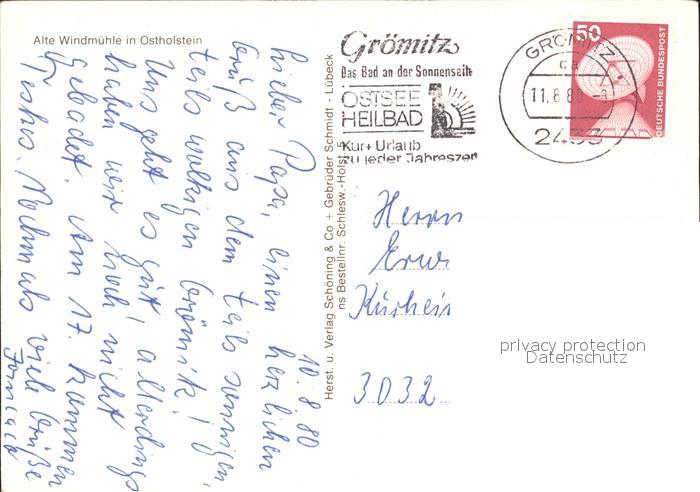 Alte Windmühle in Ostholstein
10.8.80
Lieber Papa, einen herzlichen
Gruß aus dem teils sonnigen,
teils wolkigen Grömitz!
Uns geht es gut, allerdings
haben wir noch nicht
gebadet. Am 17. kommen
Nochmals viele Grüße
Herst. u. Verlag Schöning & Co + Gebrüder Schmidt - Lübeck
ns Bestellnr. Schlesw.-Holst.
Grömitz
Das Bad an der Sonnenseite
OSTSEE
HEILBAD
Kur + Urlaub
zu jeder Jahreszeit
GRÖMITZ
11.8.80
2433
50
DEUTSCHE BUNDESPOST
Herrn
3032
privacy protection
Datenschutz